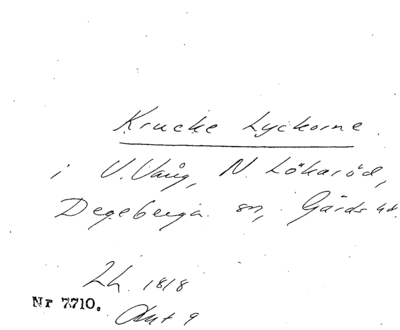 Krucke Lyckorne
i V. Vång, N. Lökaröd,
Degeberga sn, Gärds hd.
Lh. 1818
Nr 7710.
Akt 9